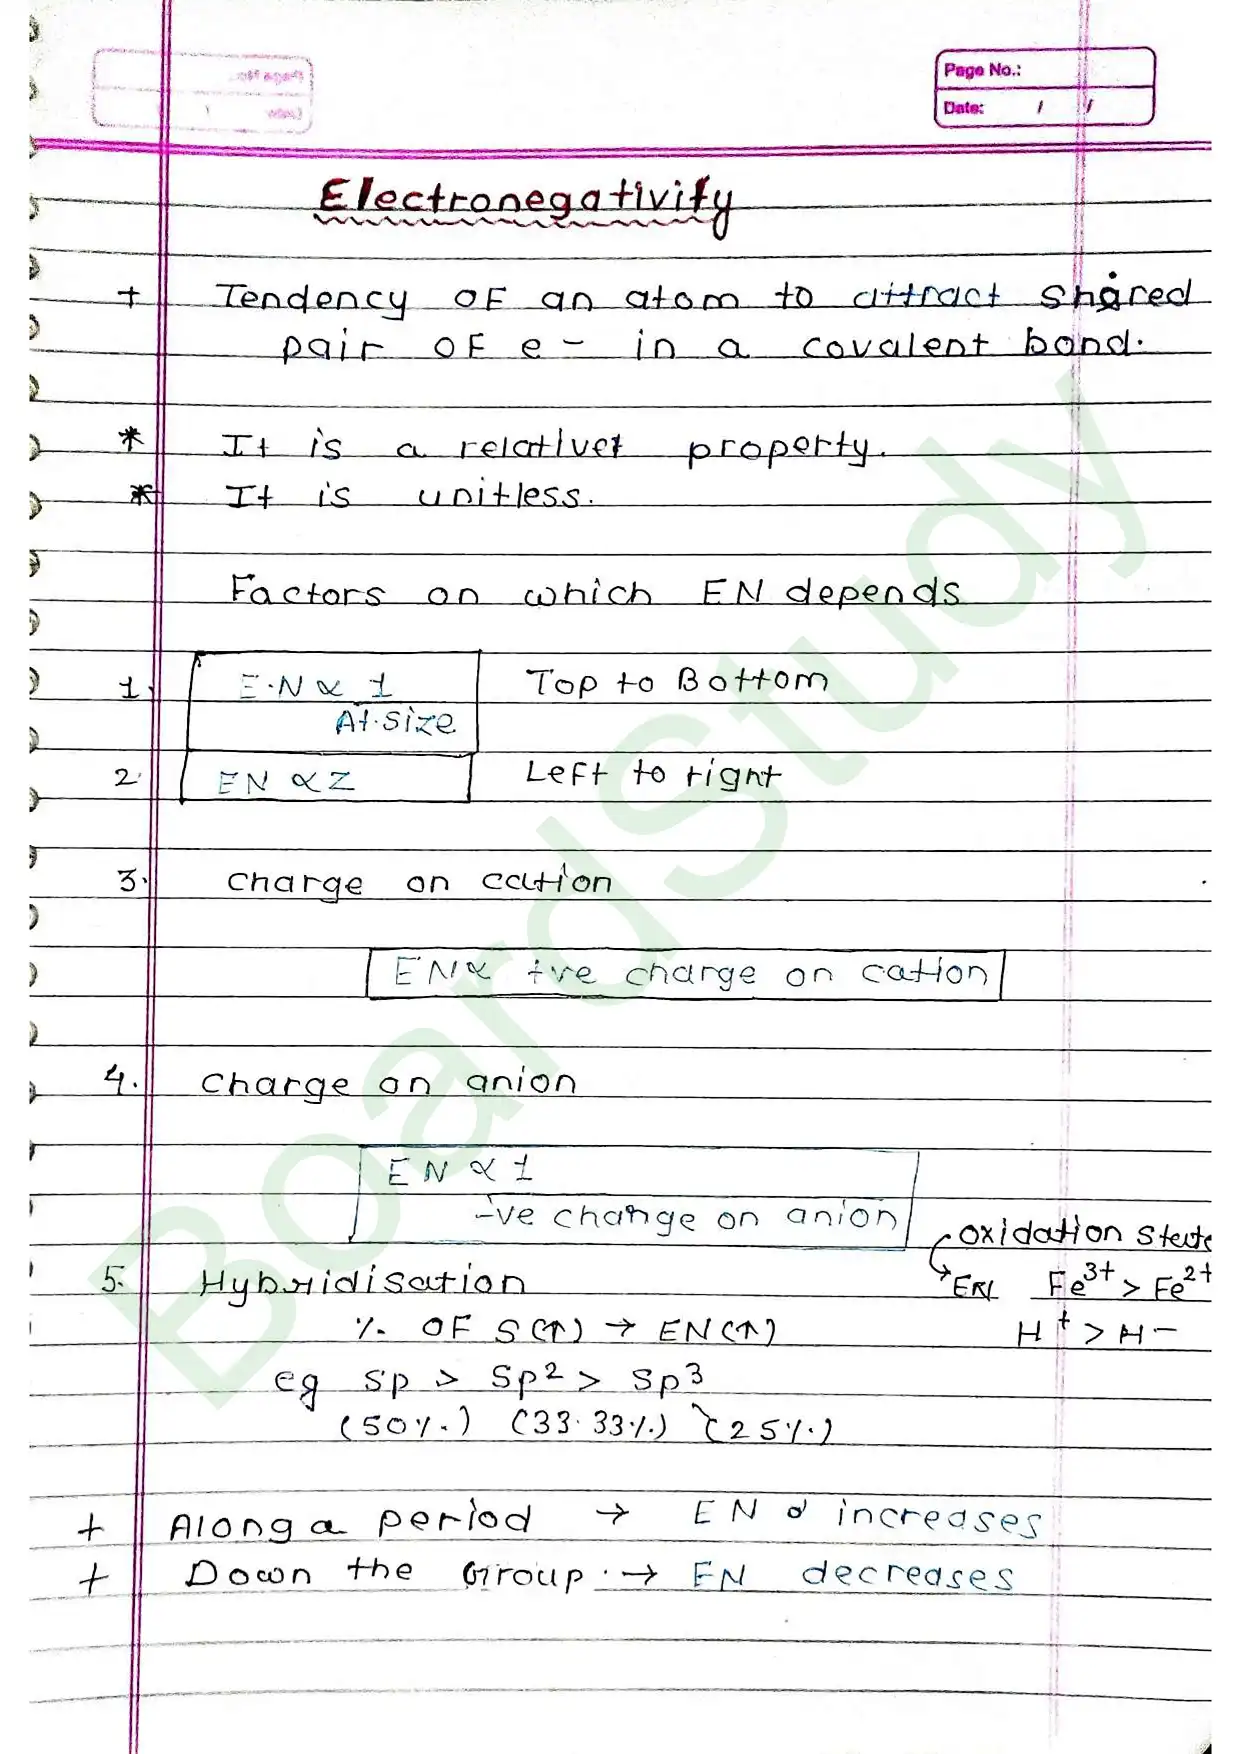 Page No.:
Date: / /
Electronegativity
+ Tendency OF an atom to attract shared
pair OF e- in a covalent bond.
* It is a relativet property.
* It is unitless.
Factors on which EN depends
1. E.N ∝ 1 Top to Bottom
At.size
2. EN ∝ Z Left to right
3. charge on cation
EN ∝ +ve charge on cation
4. charge on anion
EN ∝ 1
-ve change on anion
oxidation State
5. Hybridisation EN Fe3+ > Fe2+
% OF S(↑) → EN(↑) H+ > H-
eg sp > sp2 > sp3
(50%.) (33.33%.) (25%.)
+ Along a period → EN increases
+ Down the Group. → EN decreases
BoardStudy